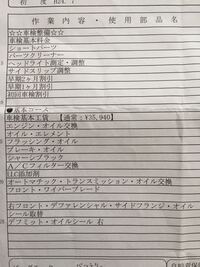 初 度 H24. 7
作 業 内 容 ・ 使 用 部 品 名
☆☆車検整備☆☆
車検基本料金
ショートパーツ
パーツクリーナー
ヘッドライト測定・調整
サイドスリップ調整
早期2ヶ月割引
早期1ヶ月割引
初回車検割引
●基本コース
車検基本工賃 【通常：¥35,940】
エンジン・オイル交換
オイル・エレメント
フラッシング・オイル
ブレーキ・オイル
シャーシブラック
A／Cフィルター交換
LLC添加剤
オートマチック・トランスミッション・オイル交換
フロント・ワイパーブレード
右フロント・デファレンシャル・サイドフランジ・オイル
シール取替
デフミット・オイルシール 右